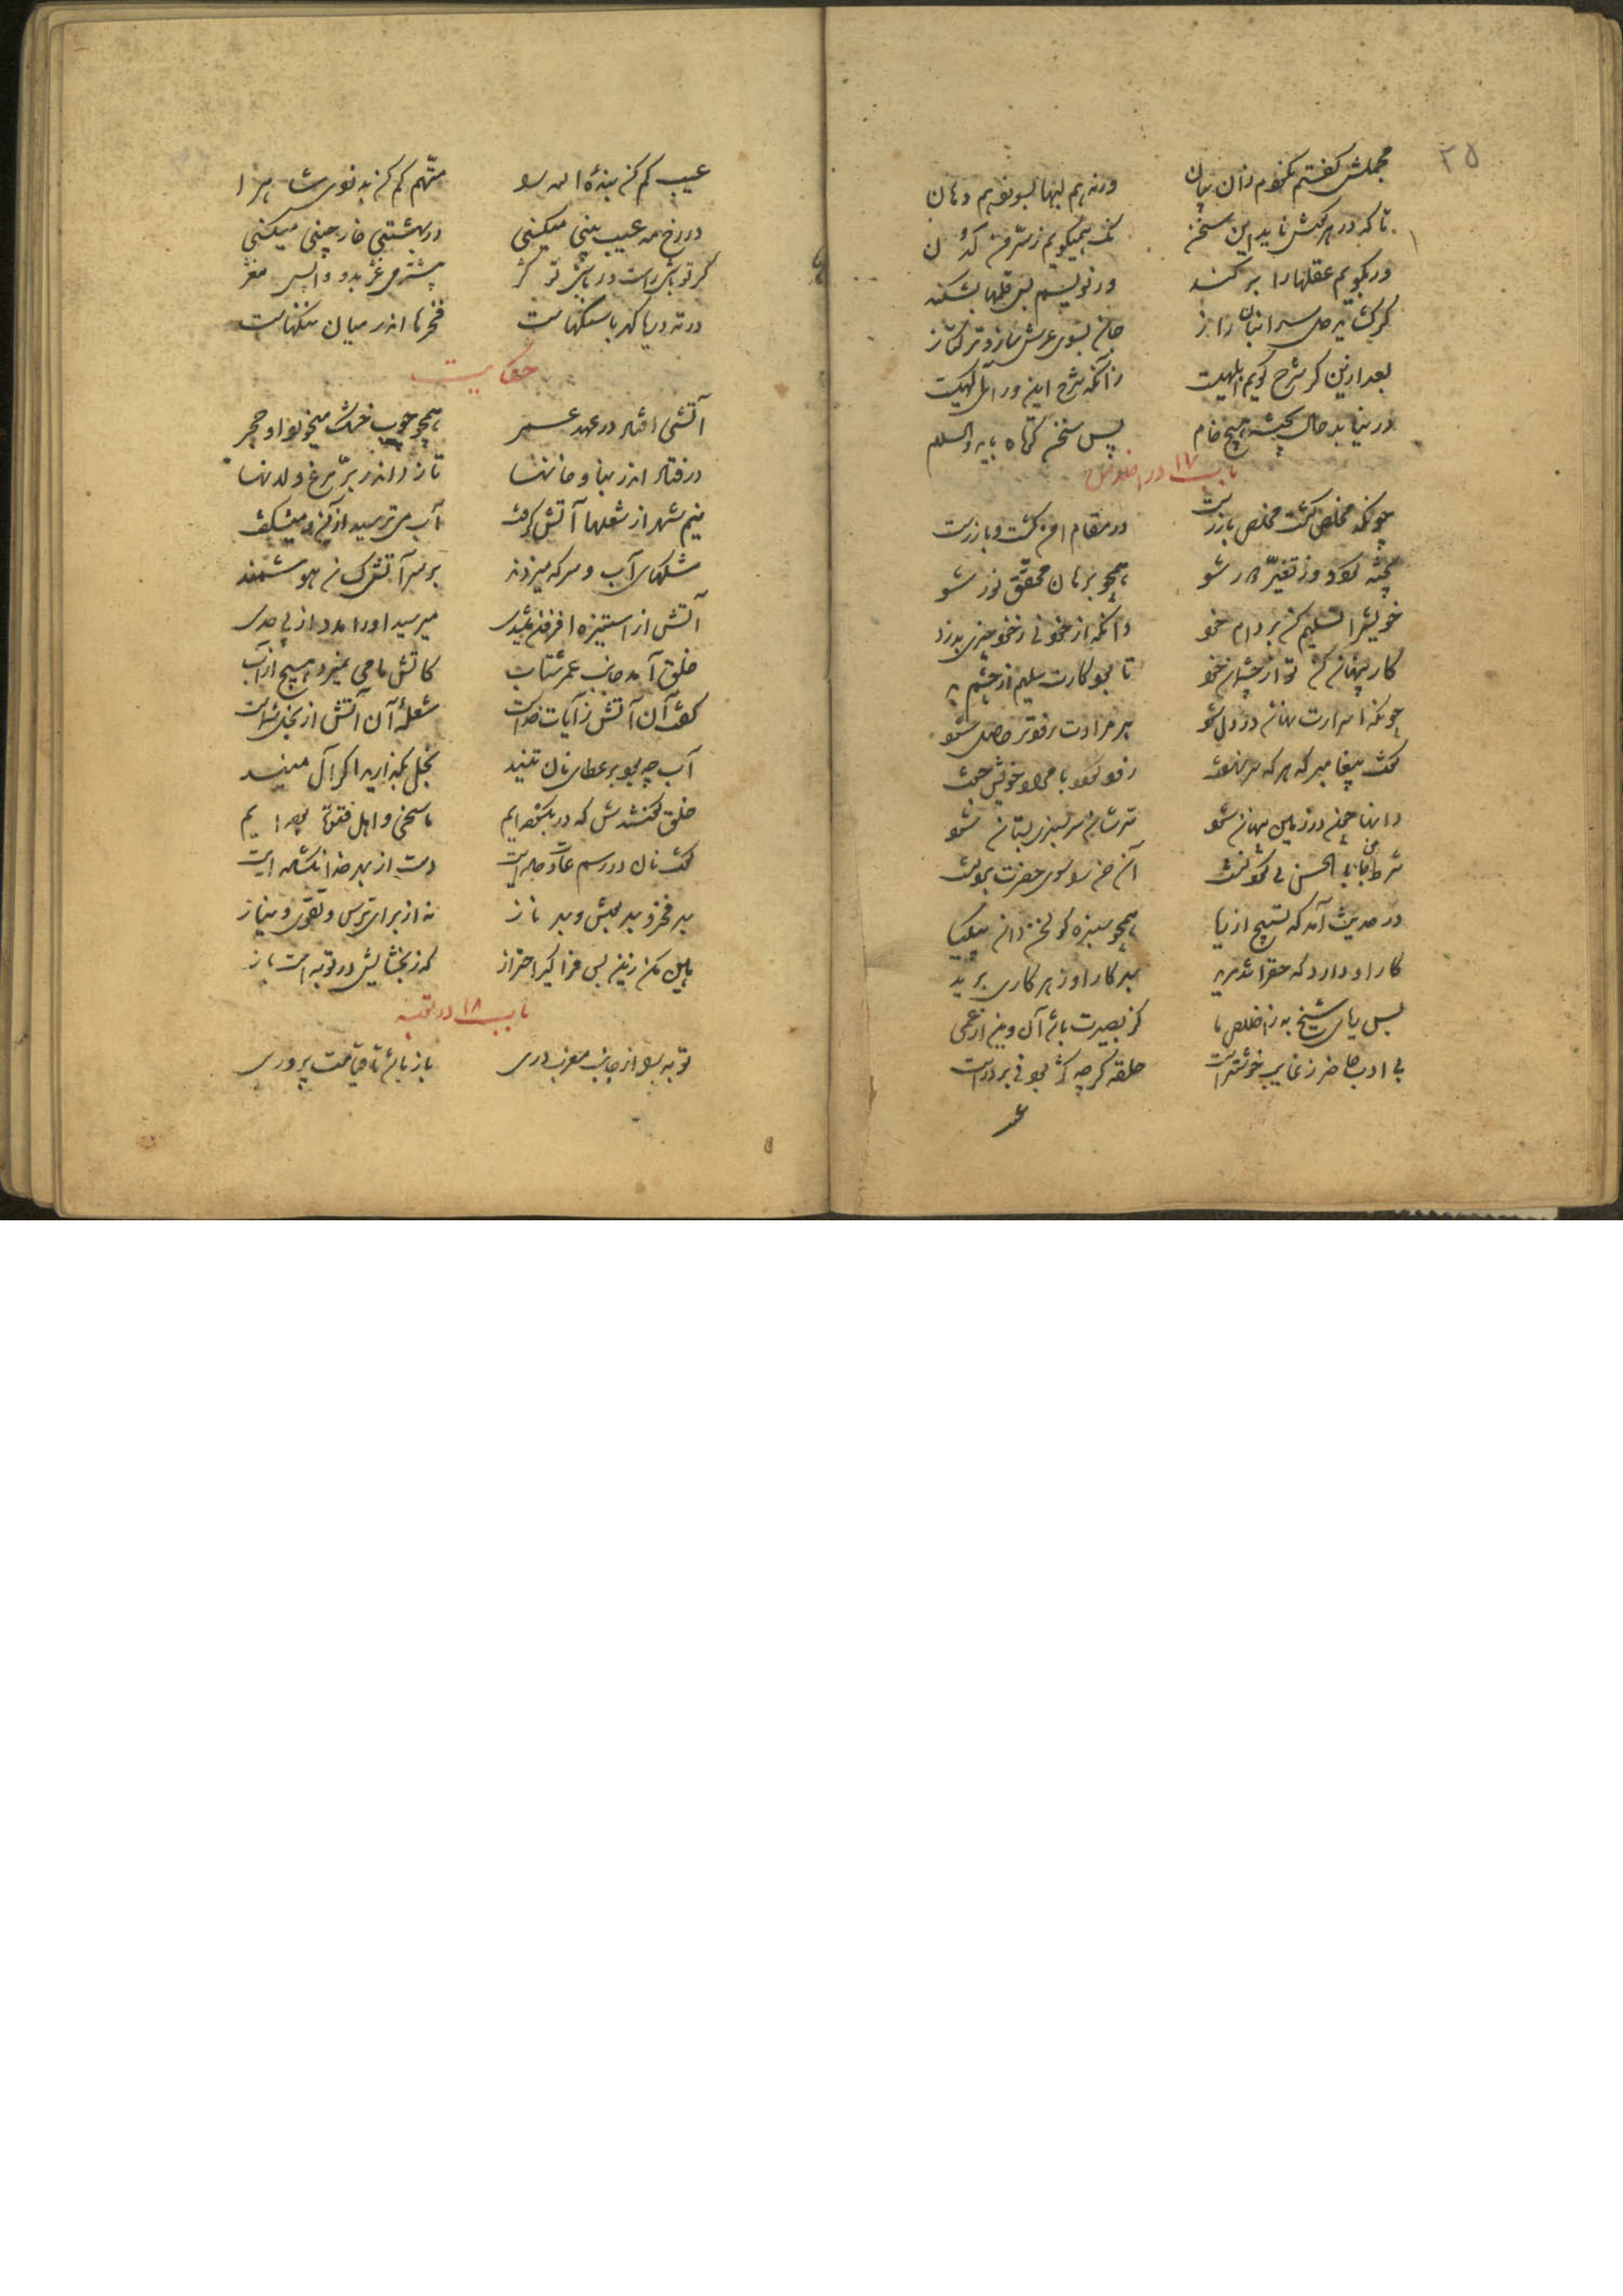 ۲۵
مجملش گفتم نگفتم زان بیان ورنه هم لبها بسوزد هم دهان
تا که در هر گوش ناید این سخن یک همیگویم ز سر من لدن
ور بگویم عقلها را بر کند ور نویسم بس قلمها بشکند
گر گشاید دل سر انبان راز جان بسوی عرش سازد ترکتاز
بعد ازین گر شرح گویم ابلهیست زانکه شرح این ورای آگهیست
در نیابد حال پخته هیچ خام پس سخن کوتاه باید والسلام
باب ۱۷ در اخلاص
چونکه مخلص گشت مخلص باز رست در مقام امن گشت و باز رست
پخته گرد و از تغیر دور شو همچو برهان محقق نور شو
خویش را تسلیم کن بر دام مزد وانگه از خود بی ز خود چیزی بدزد
کار پنهان کن تو از چشمان خود تا بود کارت سلیم از چشم بد
چونکه اسرارت نهان در دل شود آن مرادت زودتر حاصل شود
گفت پیغامبر که هر که سر نهفت زود گردد با مراد خویش جفت
دانها چون در زمین پنهان شود سر شان سر سبزی بستان شود
در حدیث آمد که تسبیح از ریا همچو سبزه گولخن دان ای کیا
کار او دارد که حق را شد مرید بهر کار او ز هر کاری برید
بی ادب حاضر ز غایب خوشترست حلقه گرچه کژ بود نی بر درست
عیب کم کن بنده الله را متهم کم کن بدزدی شاه را
در رخ مه عیب بینی میکنی در بهشتی خار چینی میکنی
در ته دریا گهر با سنگهاست فخرها اندر میان ننگهاست
حکایت
آتشی افتاد در عهد عمر همچو چوب خشک میخورد او حجر
در فتاد اندر بنا و خانها تا زد اندر پر مرغ و لانها
نیم شهر از شعلها آتش گرفت آب می ترسید از آن و میشگفت
مشکهای آب و سرکه میزدند بر سر آتش کسان هوشمند
آتش از استیزه افزون میشدی میرسید او را مدد از بی حدی
خلق آمد جانب عمر شتاب کاتش ما می نمیرد هیچ از آب
گفت آن آتش ز آیات خداست شعله آن آتش از بخل شماست
آب چه بود بر عطای نان تنید بخل بگذارید اگر آل منید
خلق گفتندش که در بگشوده ایم ما سخی و اهل فتوت بوده ایم
گفت نان در رسم و عادت داده اید دست از بهر خدا نگشاده اید
بهر فخر و بهر بوش و بهر ناز نه از برای ترس و تقوی و نیاز
باب ۱۸ در توبه
توبه را از جانب مغرب دری باز باشد تا قیامت بر وری